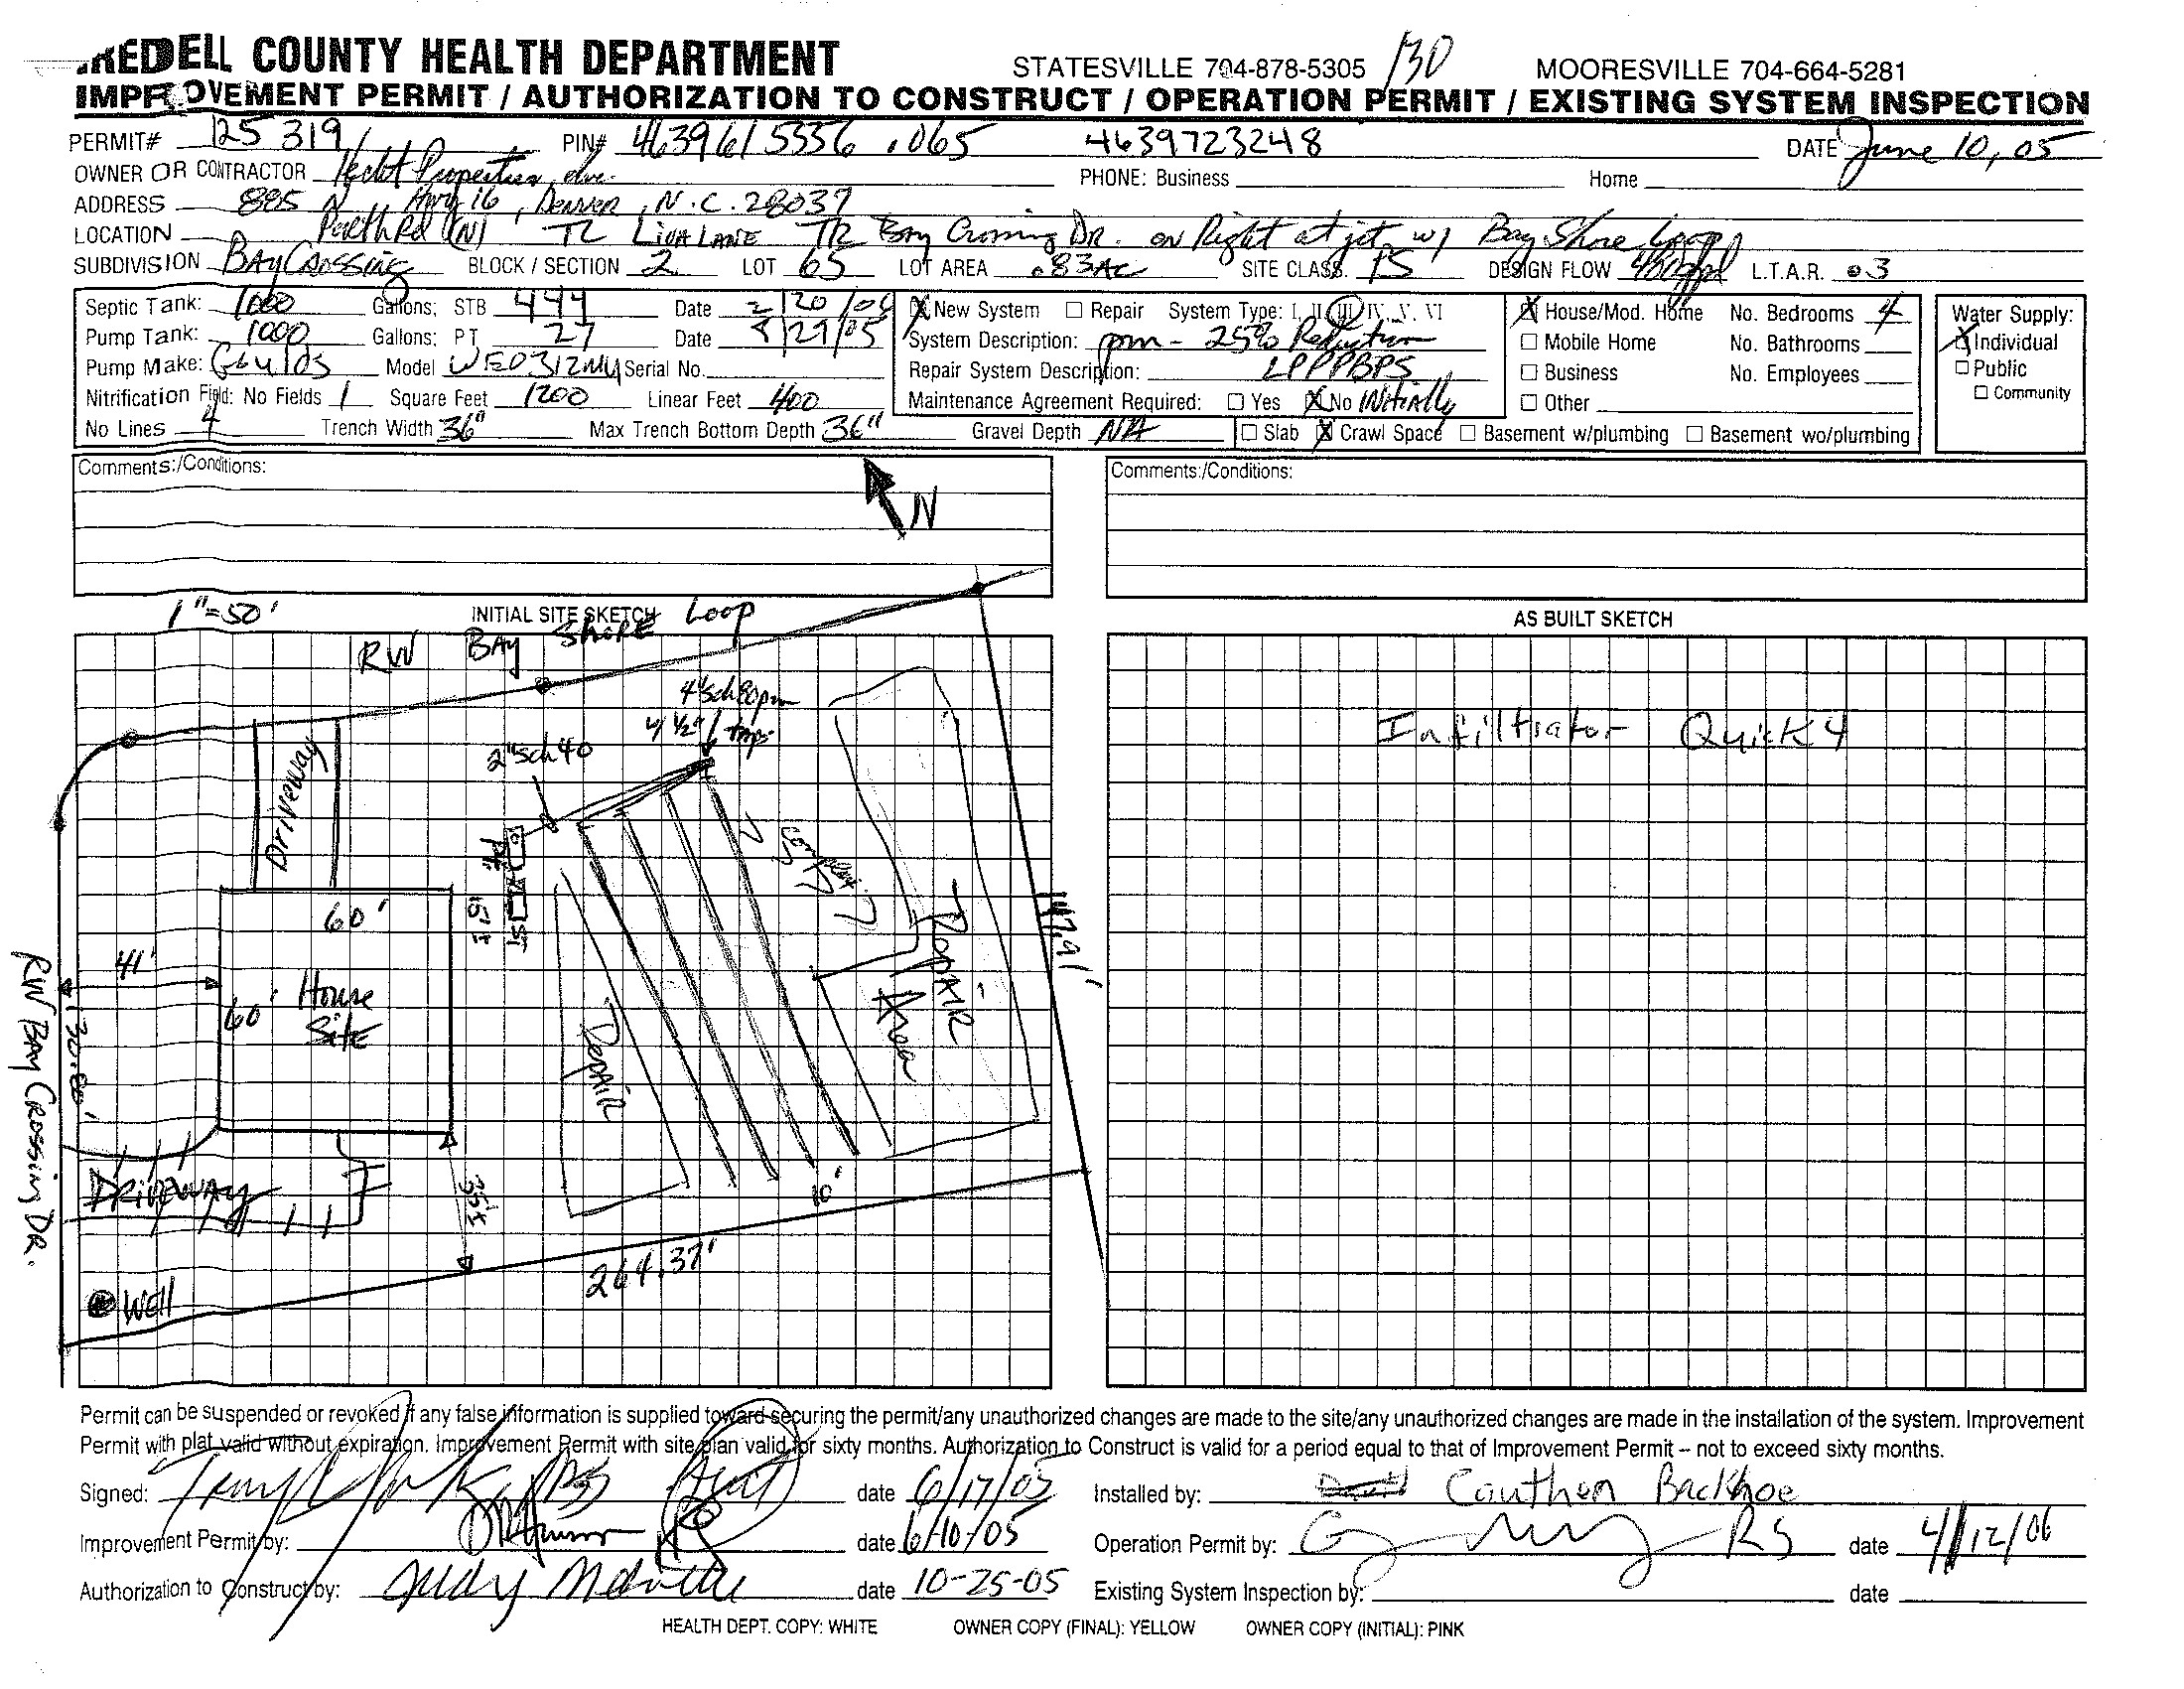 IREDELL COUNTY HEALTH DEPARTMENT STATESVILLE 704-878-5305 130 MOORESVILLE 704-664-5281
IMPROVEMENT PERMIT / AUTHORIZATION TO CONSTRUCT / OPERATION PERMIT / EXISTING SYSTEM INSPECTION
PERMIT# 125319 PIN# 4639615336.065 4639723248 DATE June 10, 05
OWNER OR CONTRACTOR Properties, Inc. PHONE: Business Home
ADDRESS 885 N Hwy 16, Denver, N.C. 28037
LOCATION Perth Rd (N) TL LIVA LANE TR Bay Crossing DR. on Right at jct w/ Bay Shore Loop
SUBDIVISION BAY CROSSING BLOCK / SECTION 2 LOT 65 LOT AREA .83AC SITE CLASS. PS DESIGN FLOW 480gpd L.T.A.R. .3
Septic Tank: 1000 Gallons: STB 444 Date 2/20/06 X New System Repair System Type: I, II, III, IV, V, VI X House/Mod. Home No. Bedrooms 4 Water Supply:
Pump Tank: 1000 Gallons: PT 27 Date 8/29/05 System Description: ppm - 25% Reduction Mobile Home No. Bathrooms X Individual
Pump Make: Goulds Model WE0312M Serial No. Repair System Description: LPPPBPS Business No. Employees Public
Nitrification Field: No Fields 1 Square Feet 1200 Linear Feet 400 Maintenance Agreement Required: Yes X No INitially Other Community
No Lines 4 Trench Width 36" Max Trench Bottom Depth 36" Gravel Depth NA Slab X Crawl Space Basement w/plumbing Basement wo/plumbing
Comments:/Conditions: Comments:/Conditions:
N
1"=50' INITIAL SITE SKETCH AS BUILT SKETCH
R/W BAY SHORE Loop
4" sch 80 pm
w/ 1/2" taps
2" sch 40
Infiltrator Quick 4
Driveway
PT
ST
15'
60'
41'
60'
House Site
R/W BAY CROSSING DR.
130.80'
Repair
Repair Area
147.91'
10'
DRIVEWAY
35'
264.37'
Well
Permit can be suspended or revoked if any false information is supplied toward securing the permit/any unauthorized changes are made to the site/any unauthorized changes are made in the installation of the system. Improvement
Permit with plat valid without expiration. Improvement Permit with site plan valid for sixty months. Authorization to Construct is valid for a period equal to that of Improvement Permit – not to exceed sixty months.
Signed: date 6/17/05 Installed by: Cauthen Backhoe
Improvement Permit by: date 6/10/05 Operation Permit by: RS date 4/12/06
Authorization to Construct by: Judy date 10-25-05 Existing System Inspection by: date
HEALTH DEPT. COPY: WHITE OWNER COPY (FINAL): YELLOW OWNER COPY (INITIAL): PINK